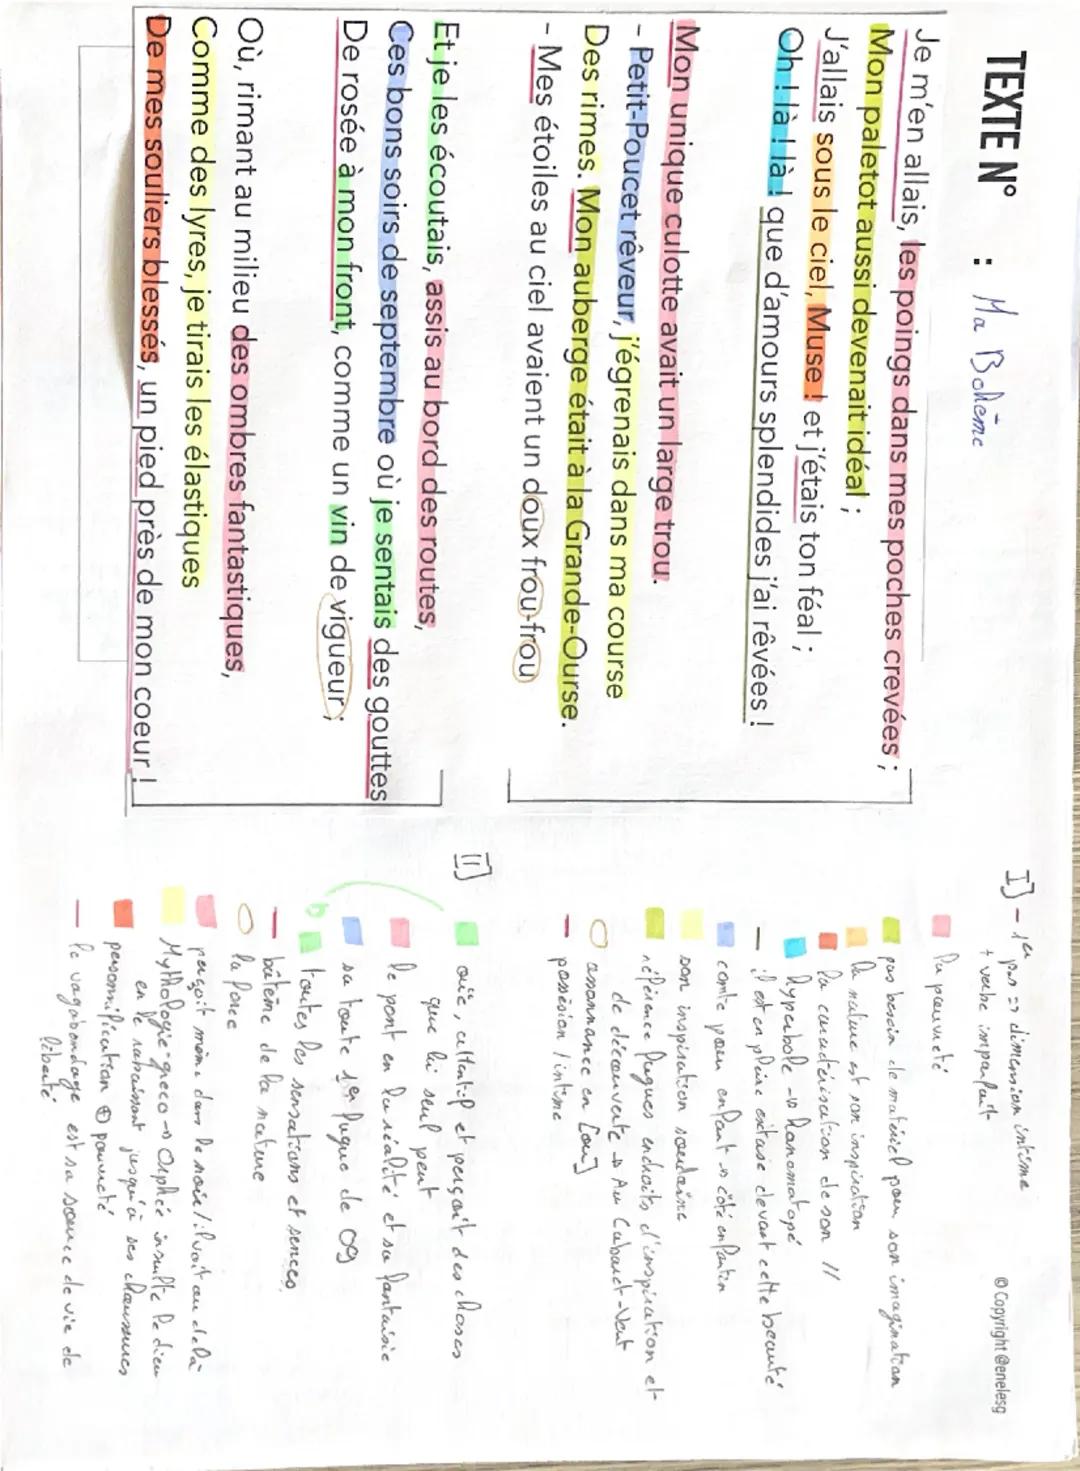 TEXTE N° : Ma Bohème
© Copyright @enelesg
Je m'en allais, les poings dans mes poches crevées ;
Mon paletot aussi devenait idéal ;
J'allais sous le ciel, Muse ! et j'étais ton féal ;
Oh ! là ! là ! que d'amours splendides j'ai rêvées !
Mon unique culotte avait un large trou.
- Petit-Poucet rêveur, j'égrenais dans ma course
Des rimes. Mon auberge était à la Grande-Ourse.
- Mes étoiles au ciel avaient un doux frou-frou
Et je les écoutais, assis au bord des routes,
Ces bons soirs de septembre où je sentais des gouttes
De rosée à mon front, comme un vin de vigueur ;
Où, rimant au milieu des ombres fantastiques,
Comme des lyres, je tirais les élastiques
De mes souliers blessés, un pied près de mon coeur !
I] - 1er => dimension intime
+ verbe imparfait
La pauvreté
pas besoin de matériel pour son imagination
la nature est son inspiration
la caractérisation de son //
hyperbole → honomatopé
il est en pleine extase devant cette beauté
comte pour enfant → côté enfantin
son inspiration soudaine
référence fugues endroits d'inspiration et
de découverte → Au Cabaret-Vert
assonnance en [ou]
possésion / intime
II]
ouïe, attentif et perçoit des choses
que lui seul peut
le pont en la réalité et sa fantaisie
sa toute 1ère fugue de 09
toutes les sensations et sences
bâtème de la nature
la force
perçoit même dans le noir / il voit au delà
Mythologie-greco → Orphée insulte le dieu
en le rabaissant jusqu'à ses chaussures
personnification ⊕ pauvreté
le vagabondage est sa source de vie de
liberté